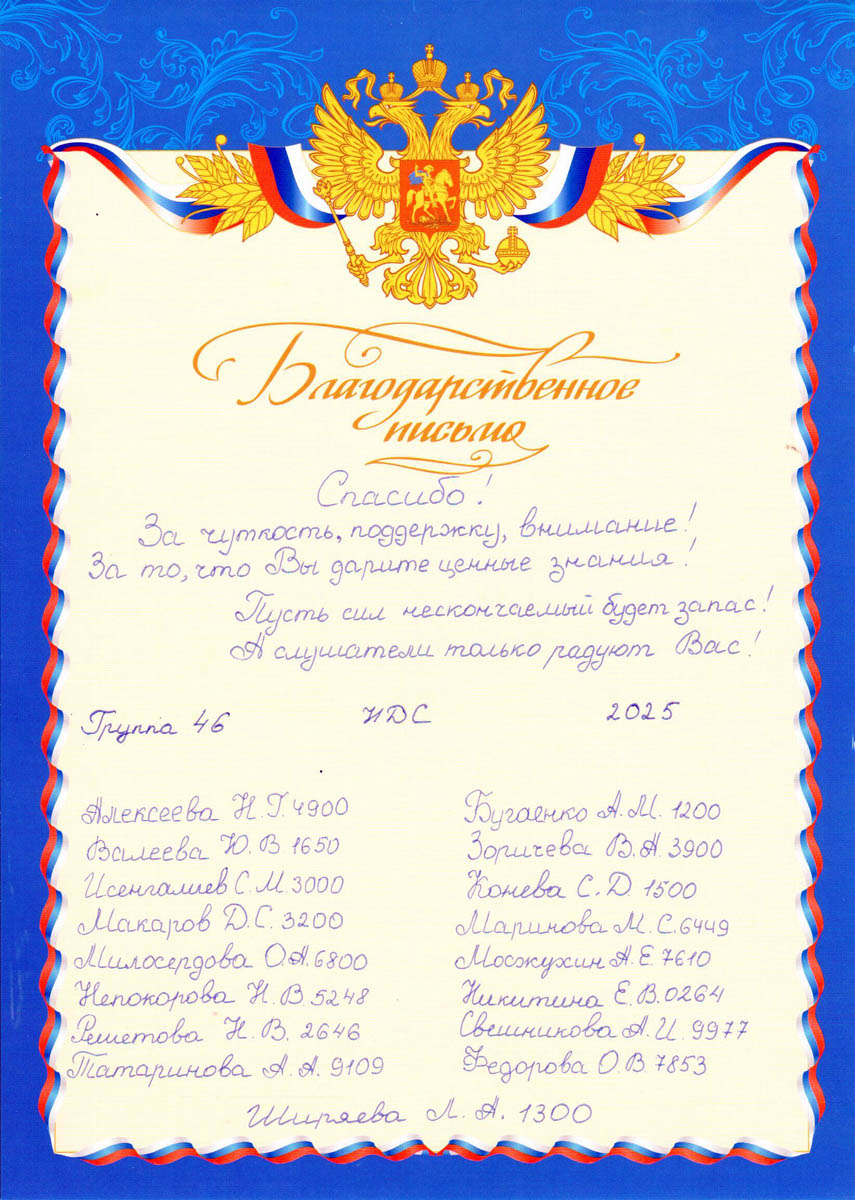 Благодарственное
письмо
Спасибо!
За чуткость, поддержку, внимание!
За то, что Вы дарите ценные знания!
Пусть сил нескончаемый будет запас!
А слушатели только радуют Вас!
Группа 46 ИДС 2025
Алексеева Н.Г. 4900
Валеева Ю.В 1650
Исенгалиев С.М. 3000
Макаров Д.С. 3200
Милосердова О.А. 6800
Непокорова Н.В. 5248
Решетова Н.В. 2646
Татаринова А.А. 9109
Бугаенко А.М. 1200
Зоричева В.А. 3900
Конева С.Д. 1500
Маринова М.С. 6449
Мосжухин А.Е. 7610
Никитина Е.В. 0264
Свешникова А.И. 9977
Федорова О.В. 7853
Ширяева Л.А. 1300